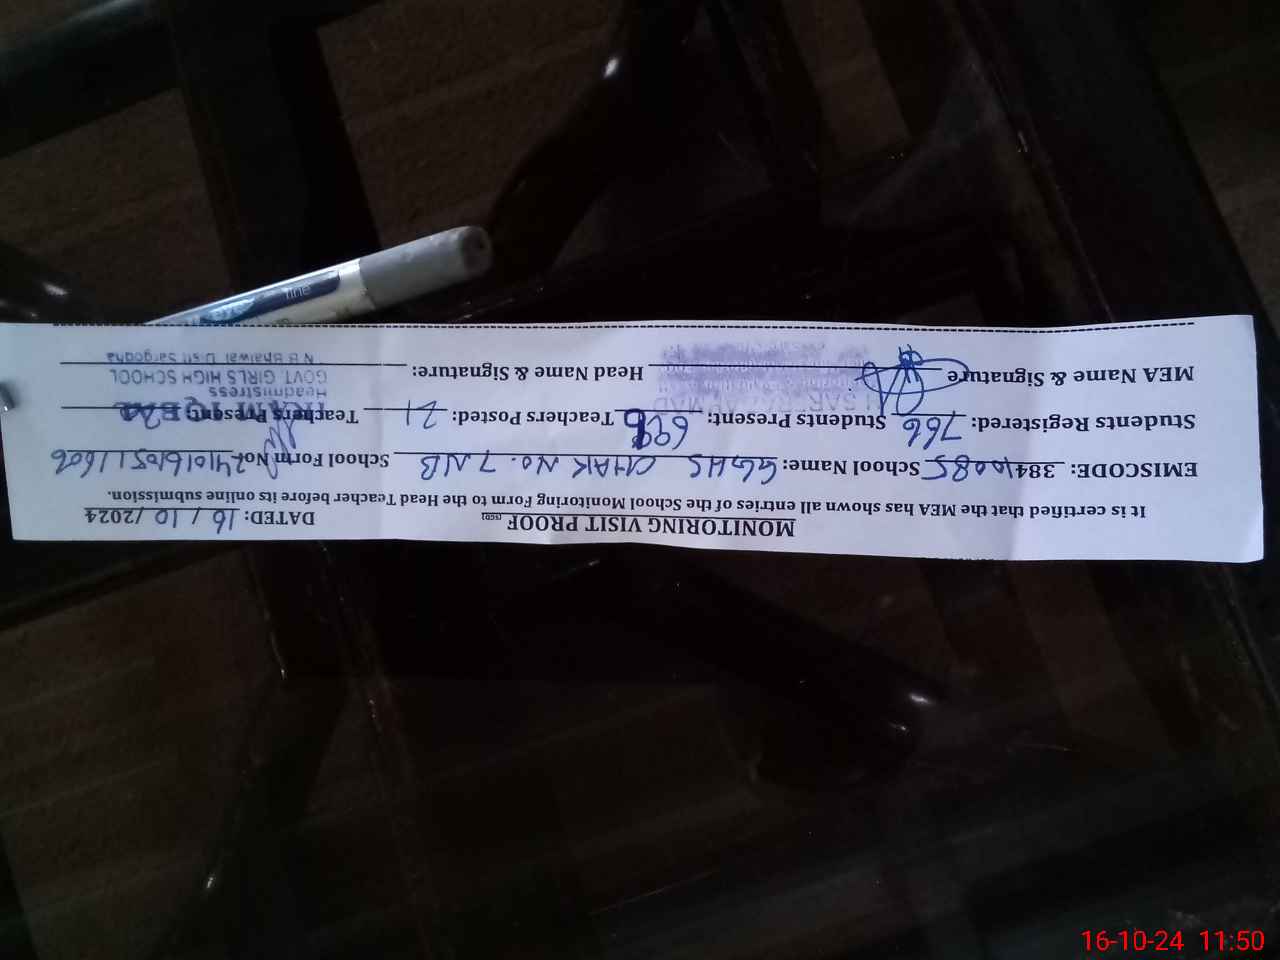 MONITORING VISIT PROOF
DATED: 16/10/2024
It is certified that the MEA has shown all entries of the School Monitoring Form to the Head Teacher before its online submission.
EMISCODE: 38410085 School Name: GGHS CHAK NO. 7 NB School Form No.
Students Registered: 766 Students Present: Teachers Posted: 21 Teachers Present:
MEA Name & Signature Head Name & Signature:
Headmistress
GOVT. GIRLS HIGH SCHOOL
N.B Bhalwal Distt Sargodha
fine
16-10-24 11:50